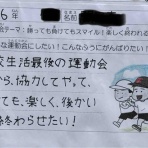 6年 名前
会テーマ:勝っても負けてもスマイル!楽しく終われる
な運動会にしたい!こんなふうにがんばりたい!
校生活最後の運動会
から、協力してやって、
ても、楽しく、後かい
終わらせたい!